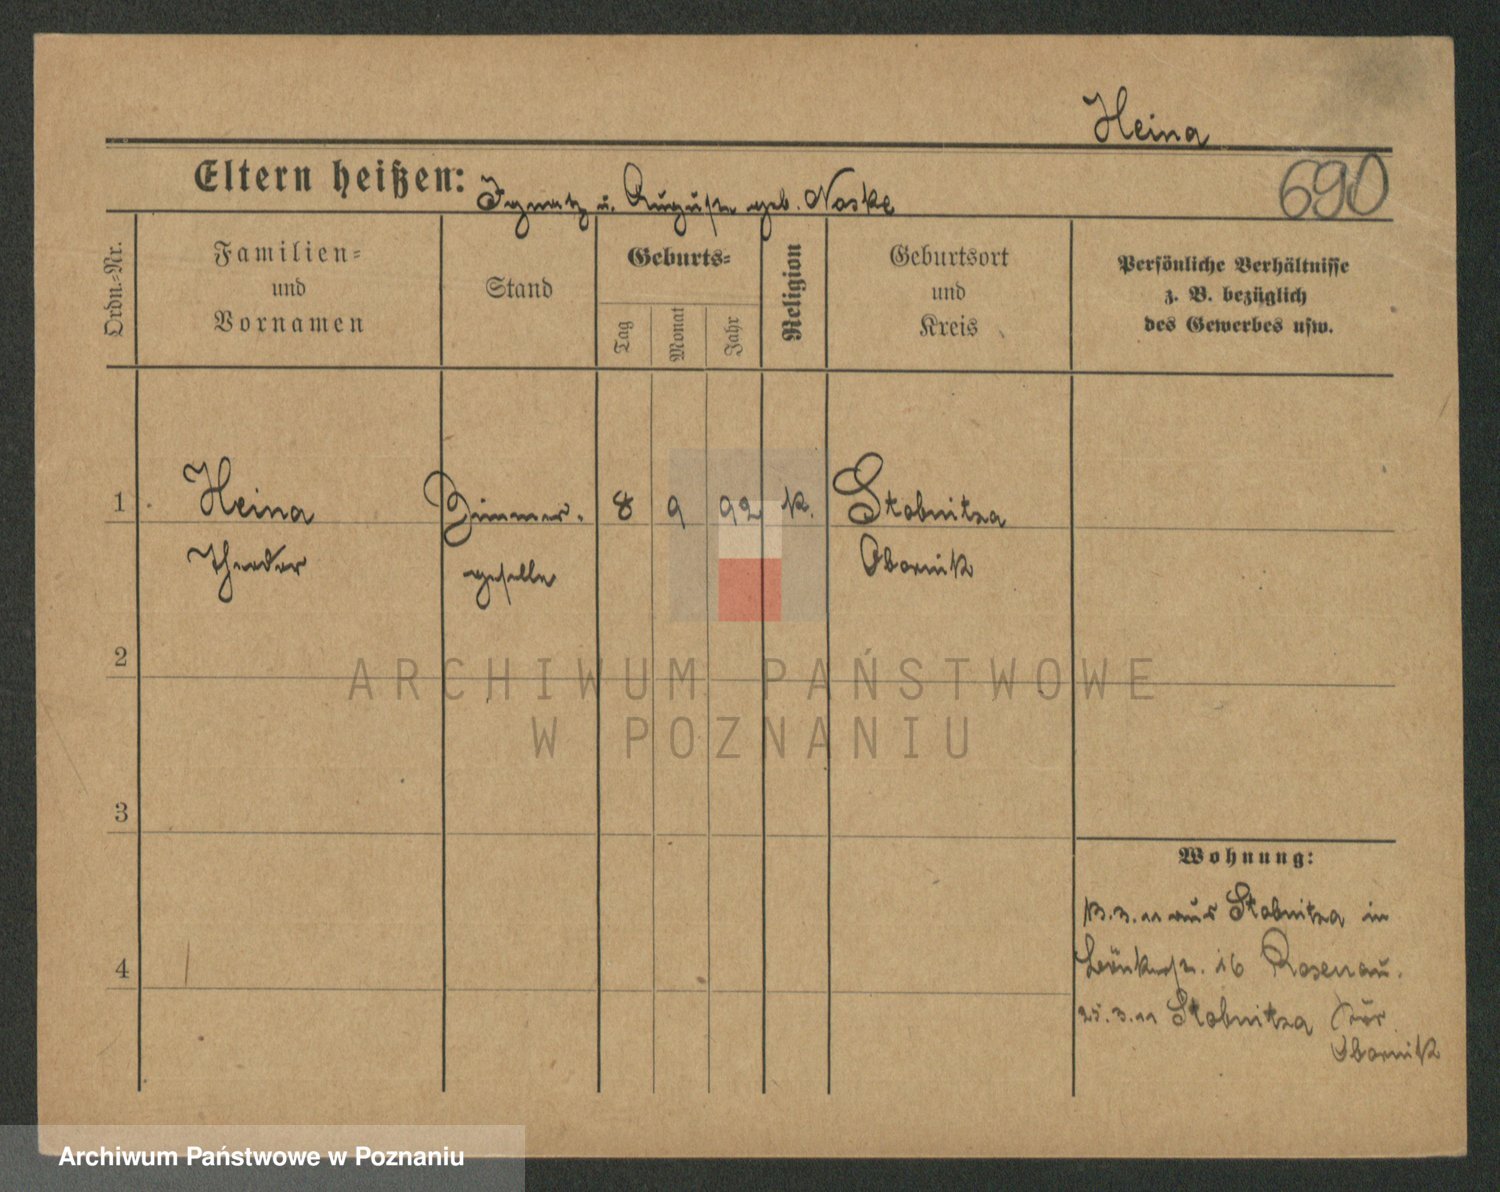 Heina
690
Eltern heißen: Ignatz u. Auguste geb. Noske
Ordn.-Nr.
Familien-
und
Vornamen
Stand
Geburts-
Tag
Monat
Jahr
Religion
Geburtsort
und
Kreis
Persönliche Verhältnisse
z. B. bezüglich
des Gewerbes usw.
1 Heina Zimmer- 8 9 92 k. Stobnitza
Theodor geselle Obornik
2
3
4
Wohnung:
13.3.11 aus Stobnitza in
16 Rosenau.
25.3.11 Stobnitza Kr
Obornik
ARCHIWUM PAŃSTWOWE
W POZNANIU
Archiwum Państwowe w Poznaniu